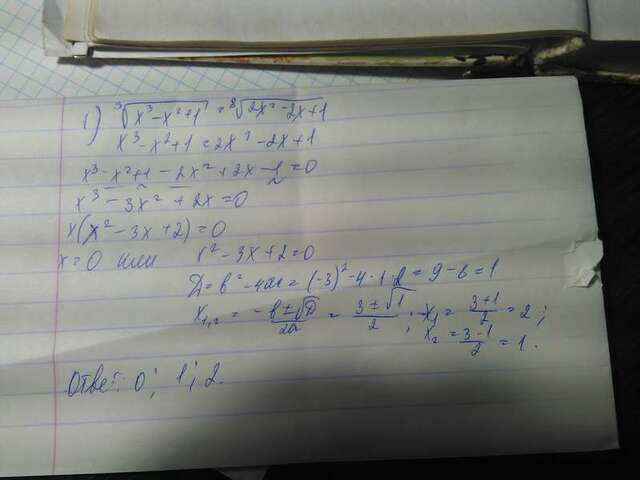 1) ³√(x³-x²+1) = ⁸√(2x²-2x+1)
x³-x²+1=2x²-2x+1
x³-x²+1-2x²+2x-1=0
x³-3x²+2x=0
x(x²-3x+2)=0
x=0 или x²-3x+2=0
D=b²-4ac=(-3)²-4·1·2=9-8=1
x₁,₂=-b±√D/2a=3±√1/2; x₁=3+1/2=2;
x₂=3-1/2=1.
Ответ: 0; 1; 2.